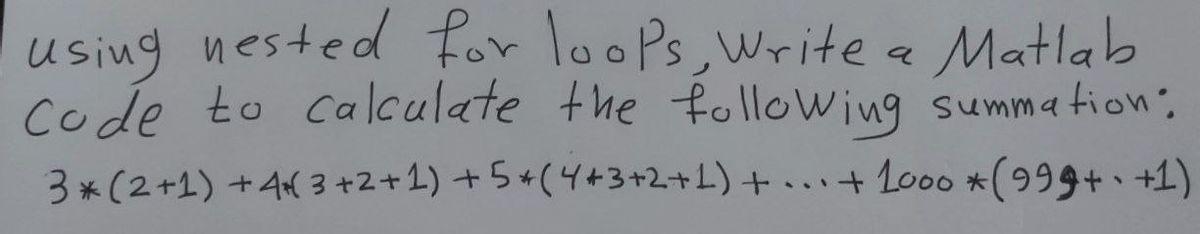 using nested for loops, Write a Matlab
Code to calculate the following summation:
3*(2+1) +4*(3+2+1) +5*(4+3+2+1)+...+ 1000 *(999+..+1)